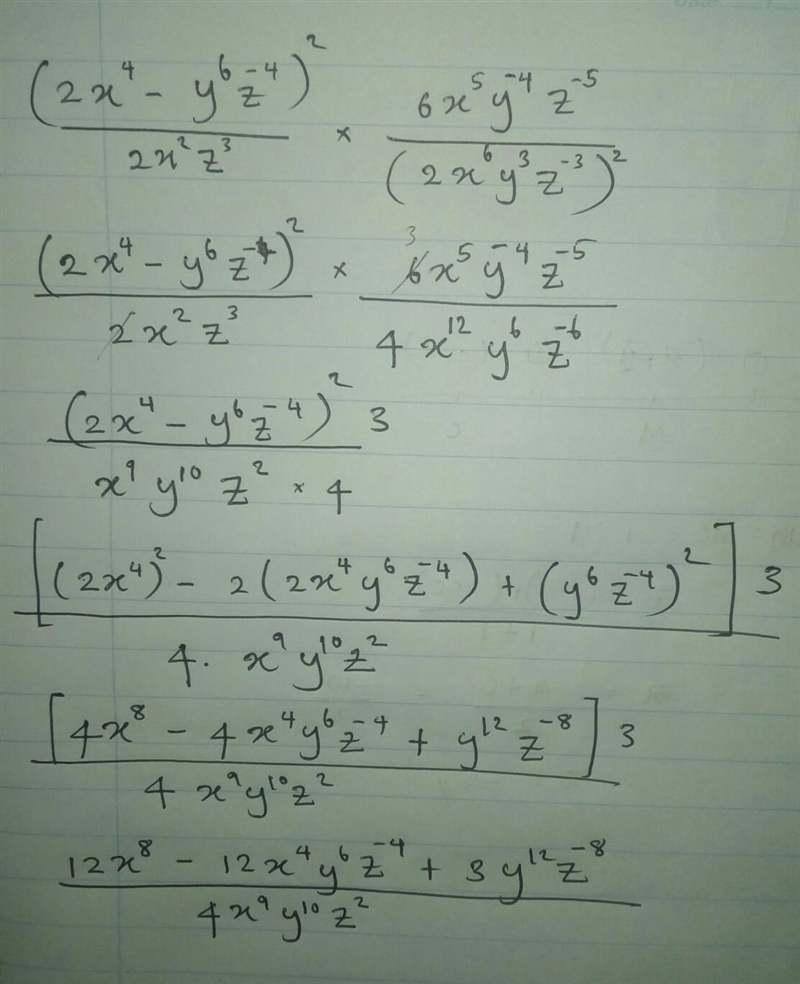 (2x⁴ - y⁶z⁻⁴)² / 2x²z³ × 6x⁵y⁻⁴z⁻⁵ / (2x⁶y³z⁻³)²
(2x⁴ - y⁶z⁻⁴)² / 2x²z³ × 3 6x⁵y⁻⁴z⁻⁵ / 4x¹²y⁶z⁻⁶
(2x⁴ - y⁶z⁻⁴)² 3 / x⁹y¹⁰z² × 4
[(2x⁴)² - 2(2x⁴y⁶z⁻⁴) + (y⁶z⁻⁴)²] 3 / 4. x⁹y¹⁰z²
[4x⁸ - 4x⁴y⁶z⁻⁴ + y¹²z⁻⁸] 3 / 4x⁹y¹⁰z²
12x⁸ - 12x⁴y⁶z⁻⁴ + 3y¹²z⁻⁸ / 4x⁹y¹⁰z²